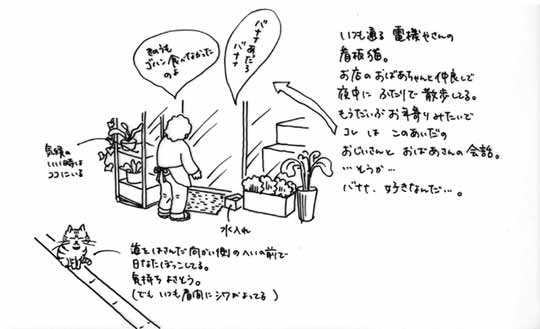 きのうも
ゴハン食べなかった
のよ
バナナ
あっだろ
バナナ
いつも通る電機やさんの
看板猫。
お店のおばあちゃんと仲良しで
夜中にふたりで散歩してる。
もうだいぶお年寄りみたいで
コレはこのあいだの
おじいさんとおばあさんの会話。
…そうか…
バナナ、好きなんだ…。
気候の
いい時は
ココにいる
水入れ
道をはさんだ向かい側のへいの前で
日なたぼっこしてる。
気持ちよさそう。
(でもいつも眉間にシワがよってる)